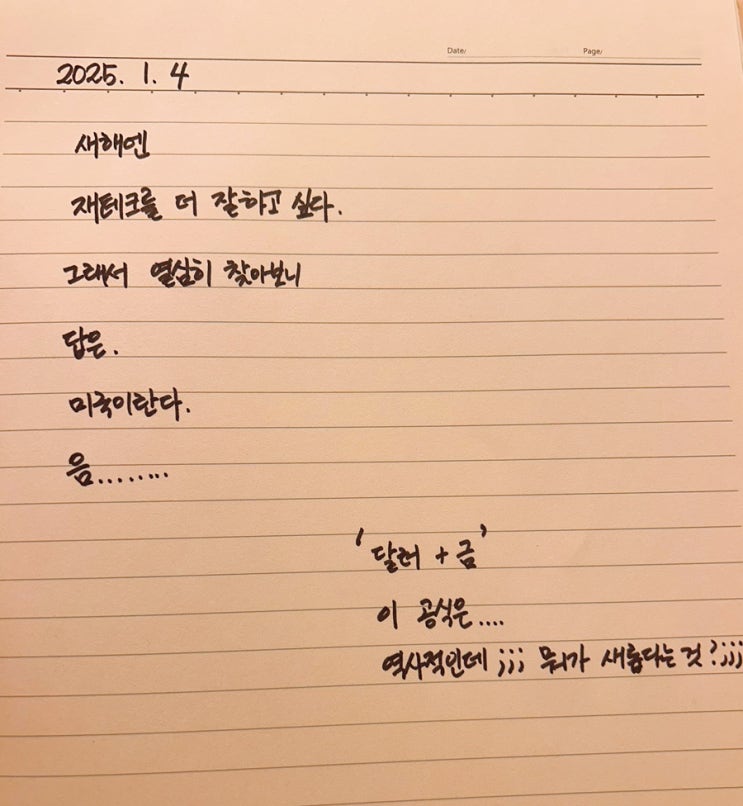 Date/
Page/
2025. 1. 4
새해엔
재테크를 더 잘하고 싶다.
그래서 열심히 찾아보니
답은.
미국이란다.
음........
'달러 + 금'
이 공식은....
역사적인데 ;;; 뭐가 새롭다는 것?;;;